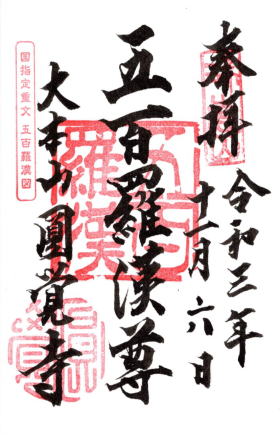 奉拝
令和三年
十一月六日
五百羅漢尊
大本山圓覚寺
国指定重文 五百羅漢図
五百羅漢